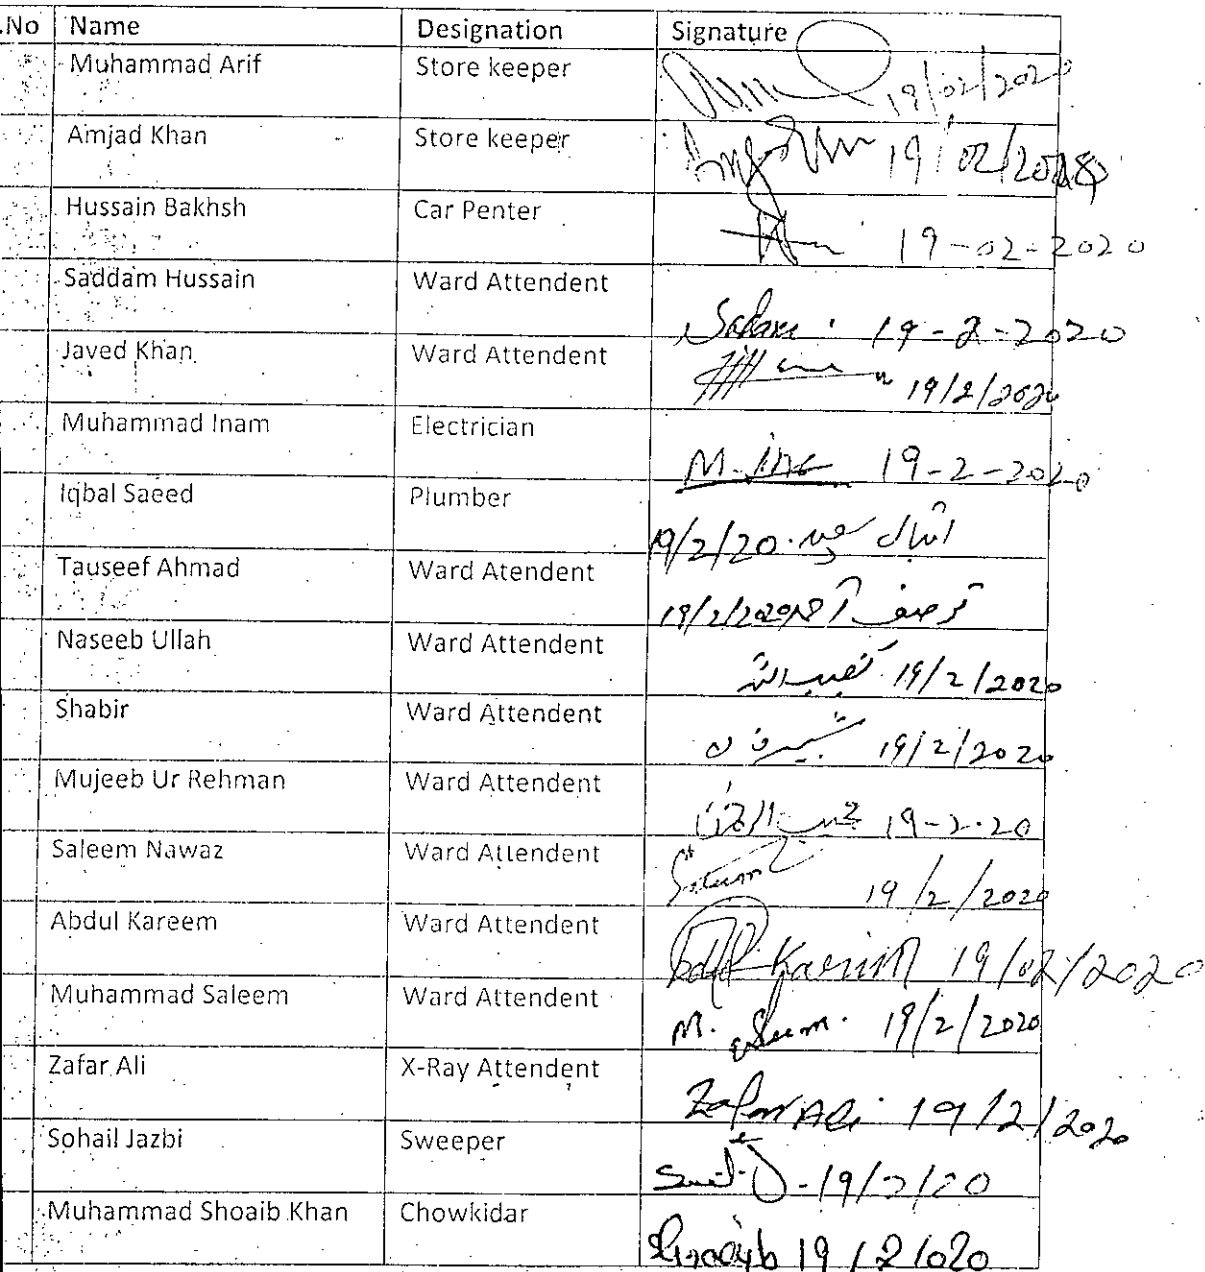 .No Name Designation Signature
Muhammad Arif Store keeper 19/02/2020
Amjad Khan Store keeper 19/02/2020
Hussain Bakhsh Car Penter 19-02-2020
Saddam Hussain Ward Attendent Sadam. 19-2-2020
Javed Khan Ward Attendent 19/2/2020
Muhammad Inam Electrician M. 19-2-2020
Iqbal Saeed Plumber اقبال سعید 19/2/20
Tauseef Ahmad Ward Atendent توصیف احمد 19/2/2020
Naseeb Ullah Ward Attendent نصیب اللہ 19/2/2020
Shabir Ward Attendent 19/2/2020
Mujeeb Ur Rehman Ward Attendent مجیب الرحمٰن 19-2-20
Saleem Nawaz Ward Attendent Saleem 19/2/2020
Abdul Kareem Ward Attendent Karim 19/02/2020
Muhammad Saleem Ward Attendent M. Saleem. 19/2/2020
Zafar Ali X-Ray Attendent Zafar Ali. 19/2/2020
Sohail Jazbi Sweeper 19/2/20
Muhammad Shoaib Khan Chowkidar Shoaib 19/2/020